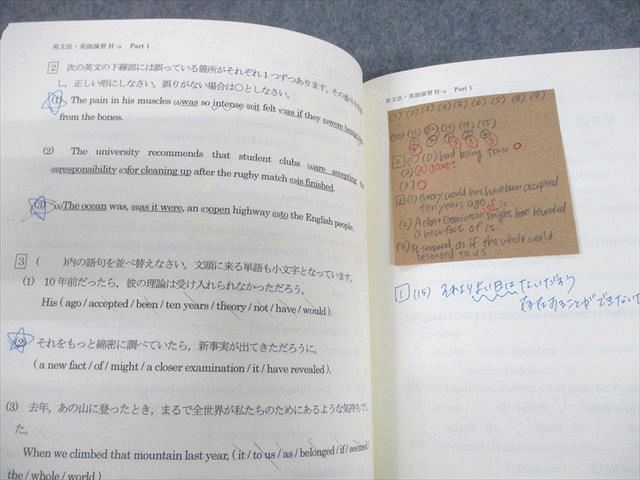 英文法・英語演習 H-α Part 1
2 次の英文の下線部には誤っている箇所がそれぞれ1つずつあります。その番号を
し，正しい形にしなさい。誤りがない場合は○としなさい。
(1) The pain in his muscles (A)was so intense (B)it felt (C)as if they (D)were being
from the bones.
(2) The university recommends that student clubs (A)are accepting the
(B)responsibility (C)for cleaning up after the rugby match (D)is finished.
(3) (A)The ocean was, (B)as it were, an (C)open highway (D)to the English people.
3 ( )内の語句を並べ替えなさい。文頭に来る単語も小文字となっています。
(1) 10年前だったら，彼の理論は受け入れられなかっただろう。
His ( ago / accepted / been / ten years / theory / not / have / would ).
(2) それをもっと綿密に調べていたら，新事実が出てきただろうに。
( a new fact / of / might / a closer examination / it / have revealed ).
(3) 去年，あの山に登ったとき，まるで全世界が私たちのためにあるような気持ちで
た。
When we climbed that mountain last year, ( it / to us / as / belonged / if / seemed /
the / whole / world )
英文法・英語演習 H-α Part 1
(1) (2) (3) (4) (5) (6) (7) (8) (9)
(10) (11) (12) (13) (14) (15)
2 (1) (D) had being torn
(2) (A) accept
(3)
3 (1) theory would not have been accepted
ten years ago
(2) A closer examination might have revealed
a new fact of it.
(3) It seemed as if the whole world
belonged to us
1 (15) それより良い日はないだろう